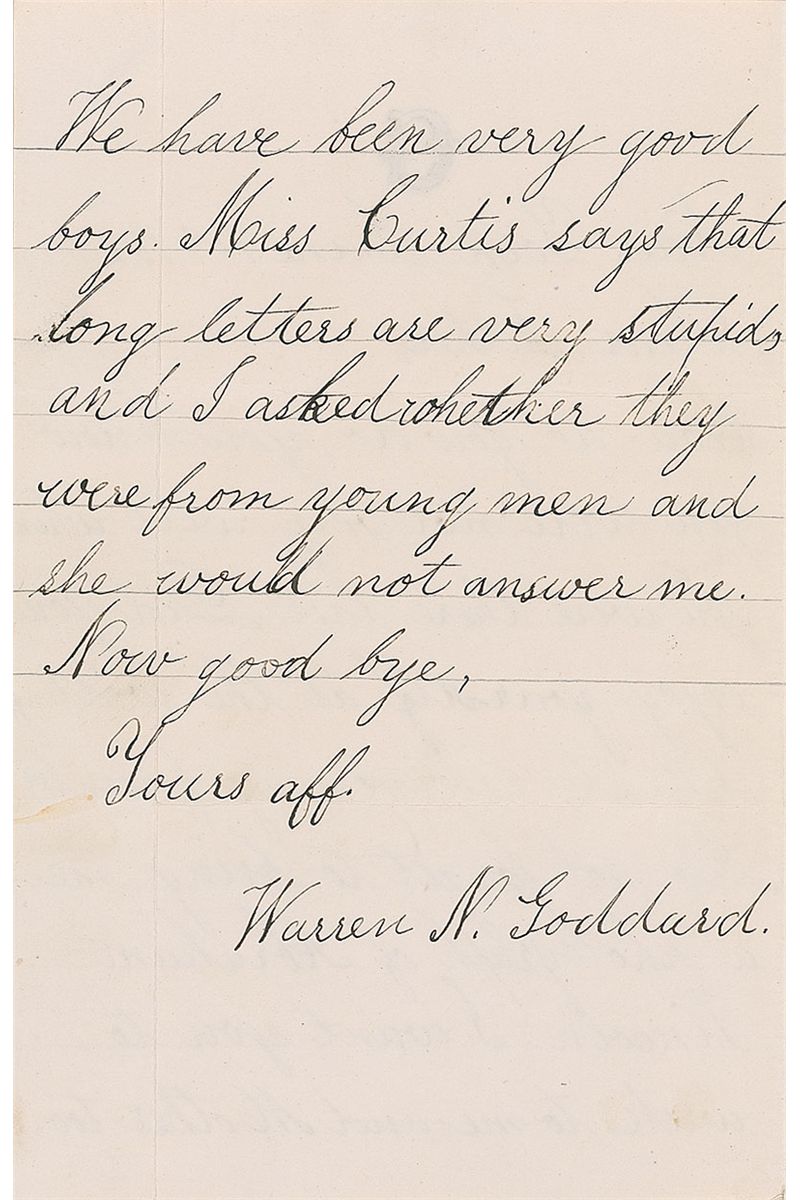 We have been very good
boys. Miss Curtis says that
long letters are very stupid,
and I asked whether they
were from young men and
she would not answer me.
Now good bye,
Yours aff.
Warren N. Goddard.